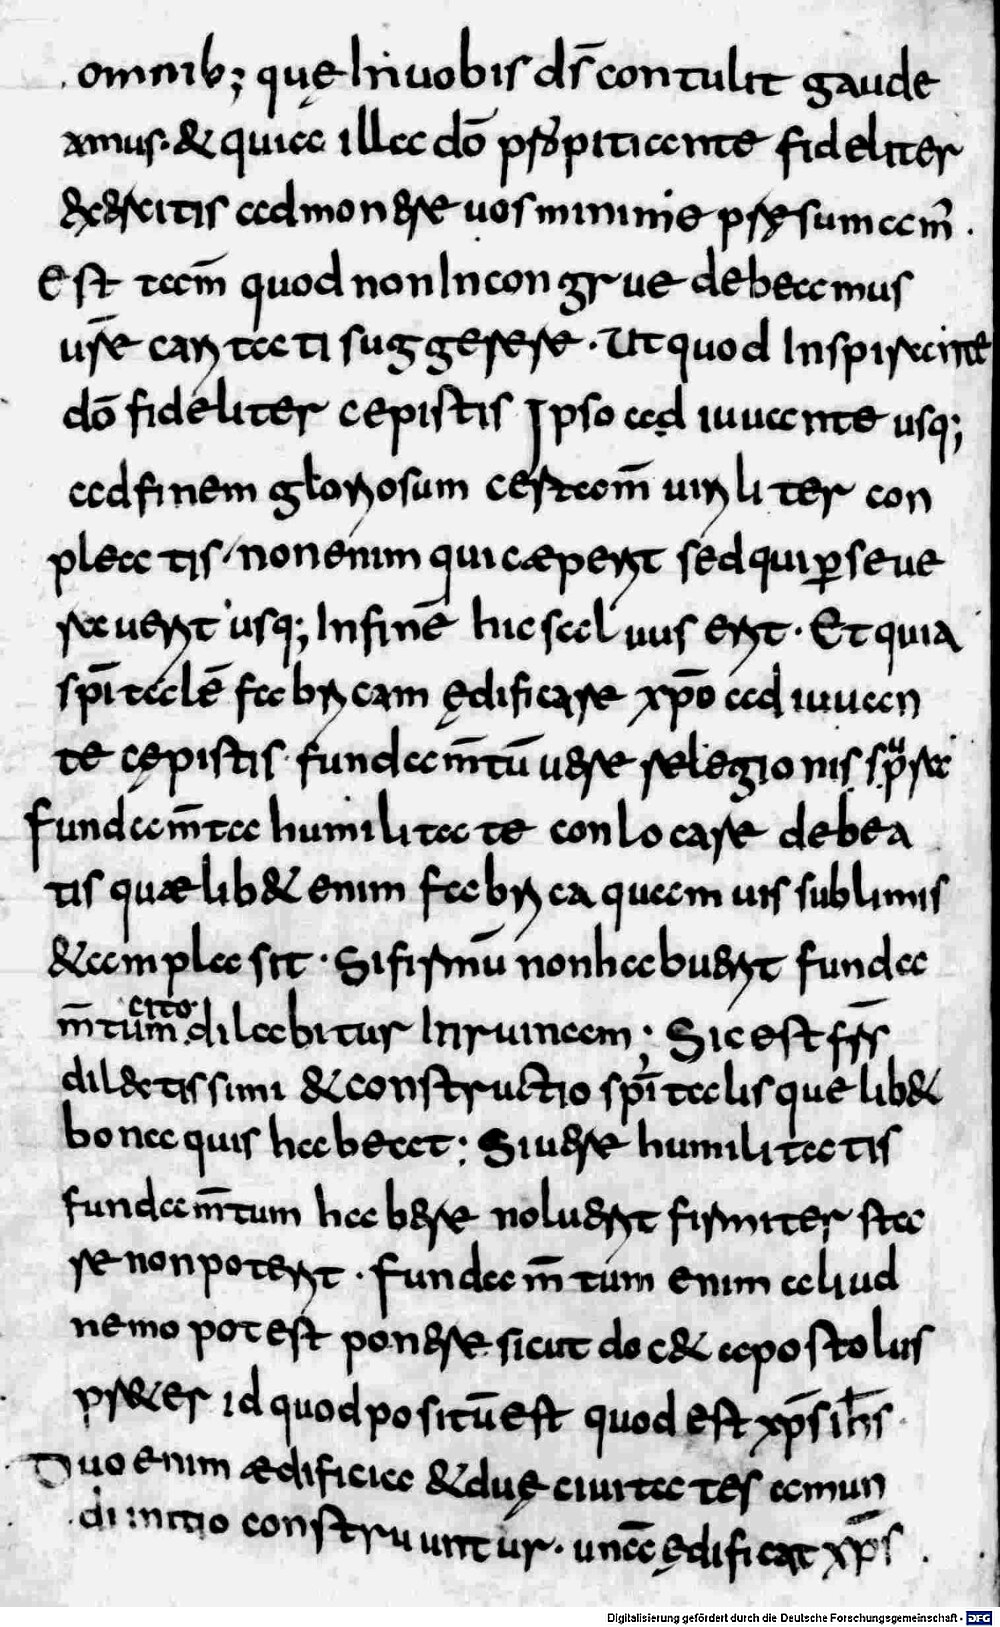 omnib; quę In uobis ds̄ contulit gaude
amus. & quia illa dō p̄ropitiante fideliter
ex&ercitis admonere uos minime p̄sumam̄.
Est tam̄ quod non Incongrue debeamus
ur̄e caritati suggerere. Ut quod Inspirante
dō fideliter cepistis Ipso adiuuante usq;
ad finem gloriosum certam̄ uiriliter con
pleatis. non enim qui cæperit sed qui ꝑseue
rauerit usq; In finē hic saluus erit. Et quia
sp̄italē fabricam ędificare xp̄o adiuuan
te cępistis fundam̄tū uere relegionis supra
fundam̄ta humilitate conlocare debea
tis quælib& enim fabrica quamuis sublimis
& ampla sit. Si firmū non habuerit funda
m̄tum cito dilabitur In ruinam; Sic est frs̄
dilectissimi & constructio sp̄italis quelib&
bona quis habeat; Si uere humilitatis
fundam̄tum habere noluerit firmiter sta
re non poterit. Fundam̄tum enim aliud
nemo potest ponere sicut doc& apostolus
pr&er id quod positū est quod est xp̄s ih̄s
Duo enim ædificia & duę ciuitates a mun
di initio construuntur. unā ędificat xp̄s.
Digitalisierung gefördert durch die Deutsche Forschungsgemeinschaft - DFG